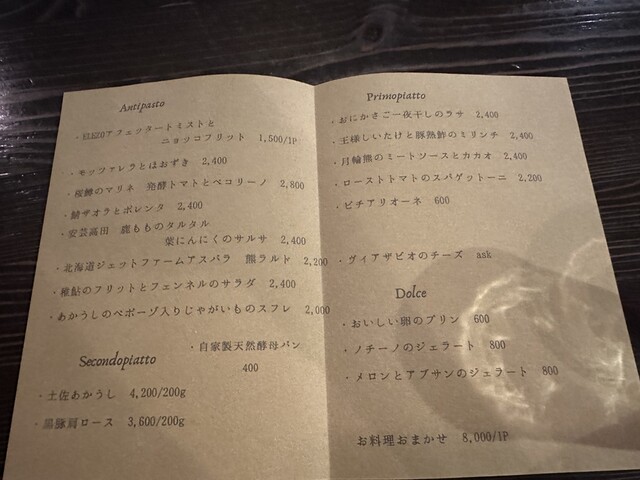 Antipasto
・ELEZOアフェッタートミストと
ニョッコフリット 1,500/1P
・モッツァレラとほおずき 2,400
・桜鱒のマリネ 発酵トマトとペコリーノ 2,800
・鯖ザオラとポレンタ 2,400
・安芸高田 鹿もものタルタル
葉にんにくのサルサ 2,400
・北海道ジェットファームアスパラ 熊ラルド 2,200
・稚鮎のフリットとフェンネルのサラダ 2,400
・あかうしのペポーゾ入りじゃがいものスフレ 2,000
・自家製天然酵母パン
400
Secondopiatto
・土佐あかうし 4,200/200g
・黒豚肩ロース 3,600/200g
Primopiatto
・おにかさご一夜干しのラサ 2,400
・王様しいたけと豚熟鮓のミリンチ 2,400
・月輪熊のミートソースとカカオ 2,400
・ローストトマトのスパゲットーニ 2,200
・ピチアリオーネ 600
・ヴィアザビオのチーズ ask
Dolce
・おいしい卵のプリン 600
・ノチーノのジェラート 800
・メロンとアブサンのジェラート 800
お料理おまかせ 8,000/1P